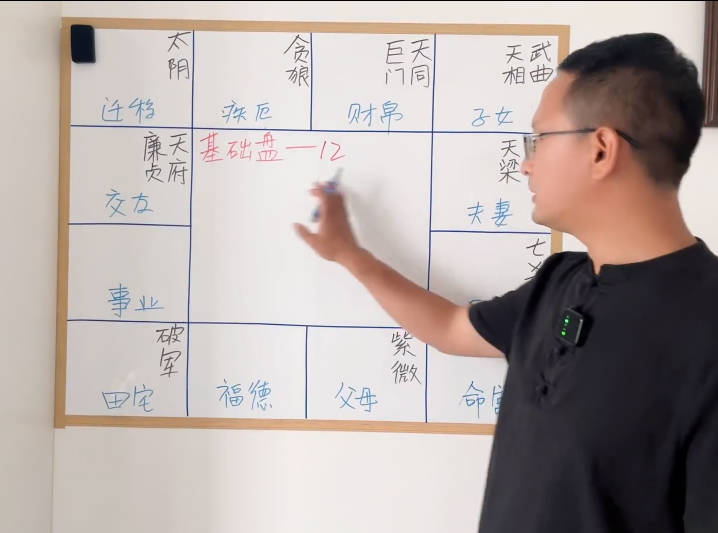 太阴
迁移
贪狼
疾厄
天同
巨门
财帛
武曲
天相
子女
天府
廉贞
交友
基础盘一12
天梁
夫妻
事业
七
破军
田宅
福德
紫微
父母
命宫